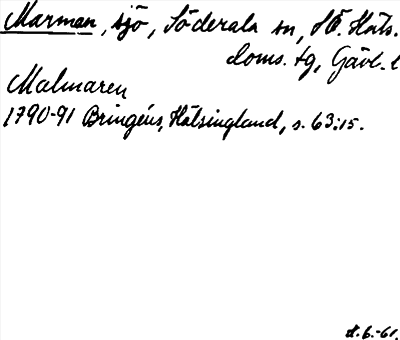 Marman, sjö, Söderala sn, SÖ. Häls.
doms. tg, Gävl. l
Malmaren
1790-91 Bringéus, Hälsingland, s. 63:15.